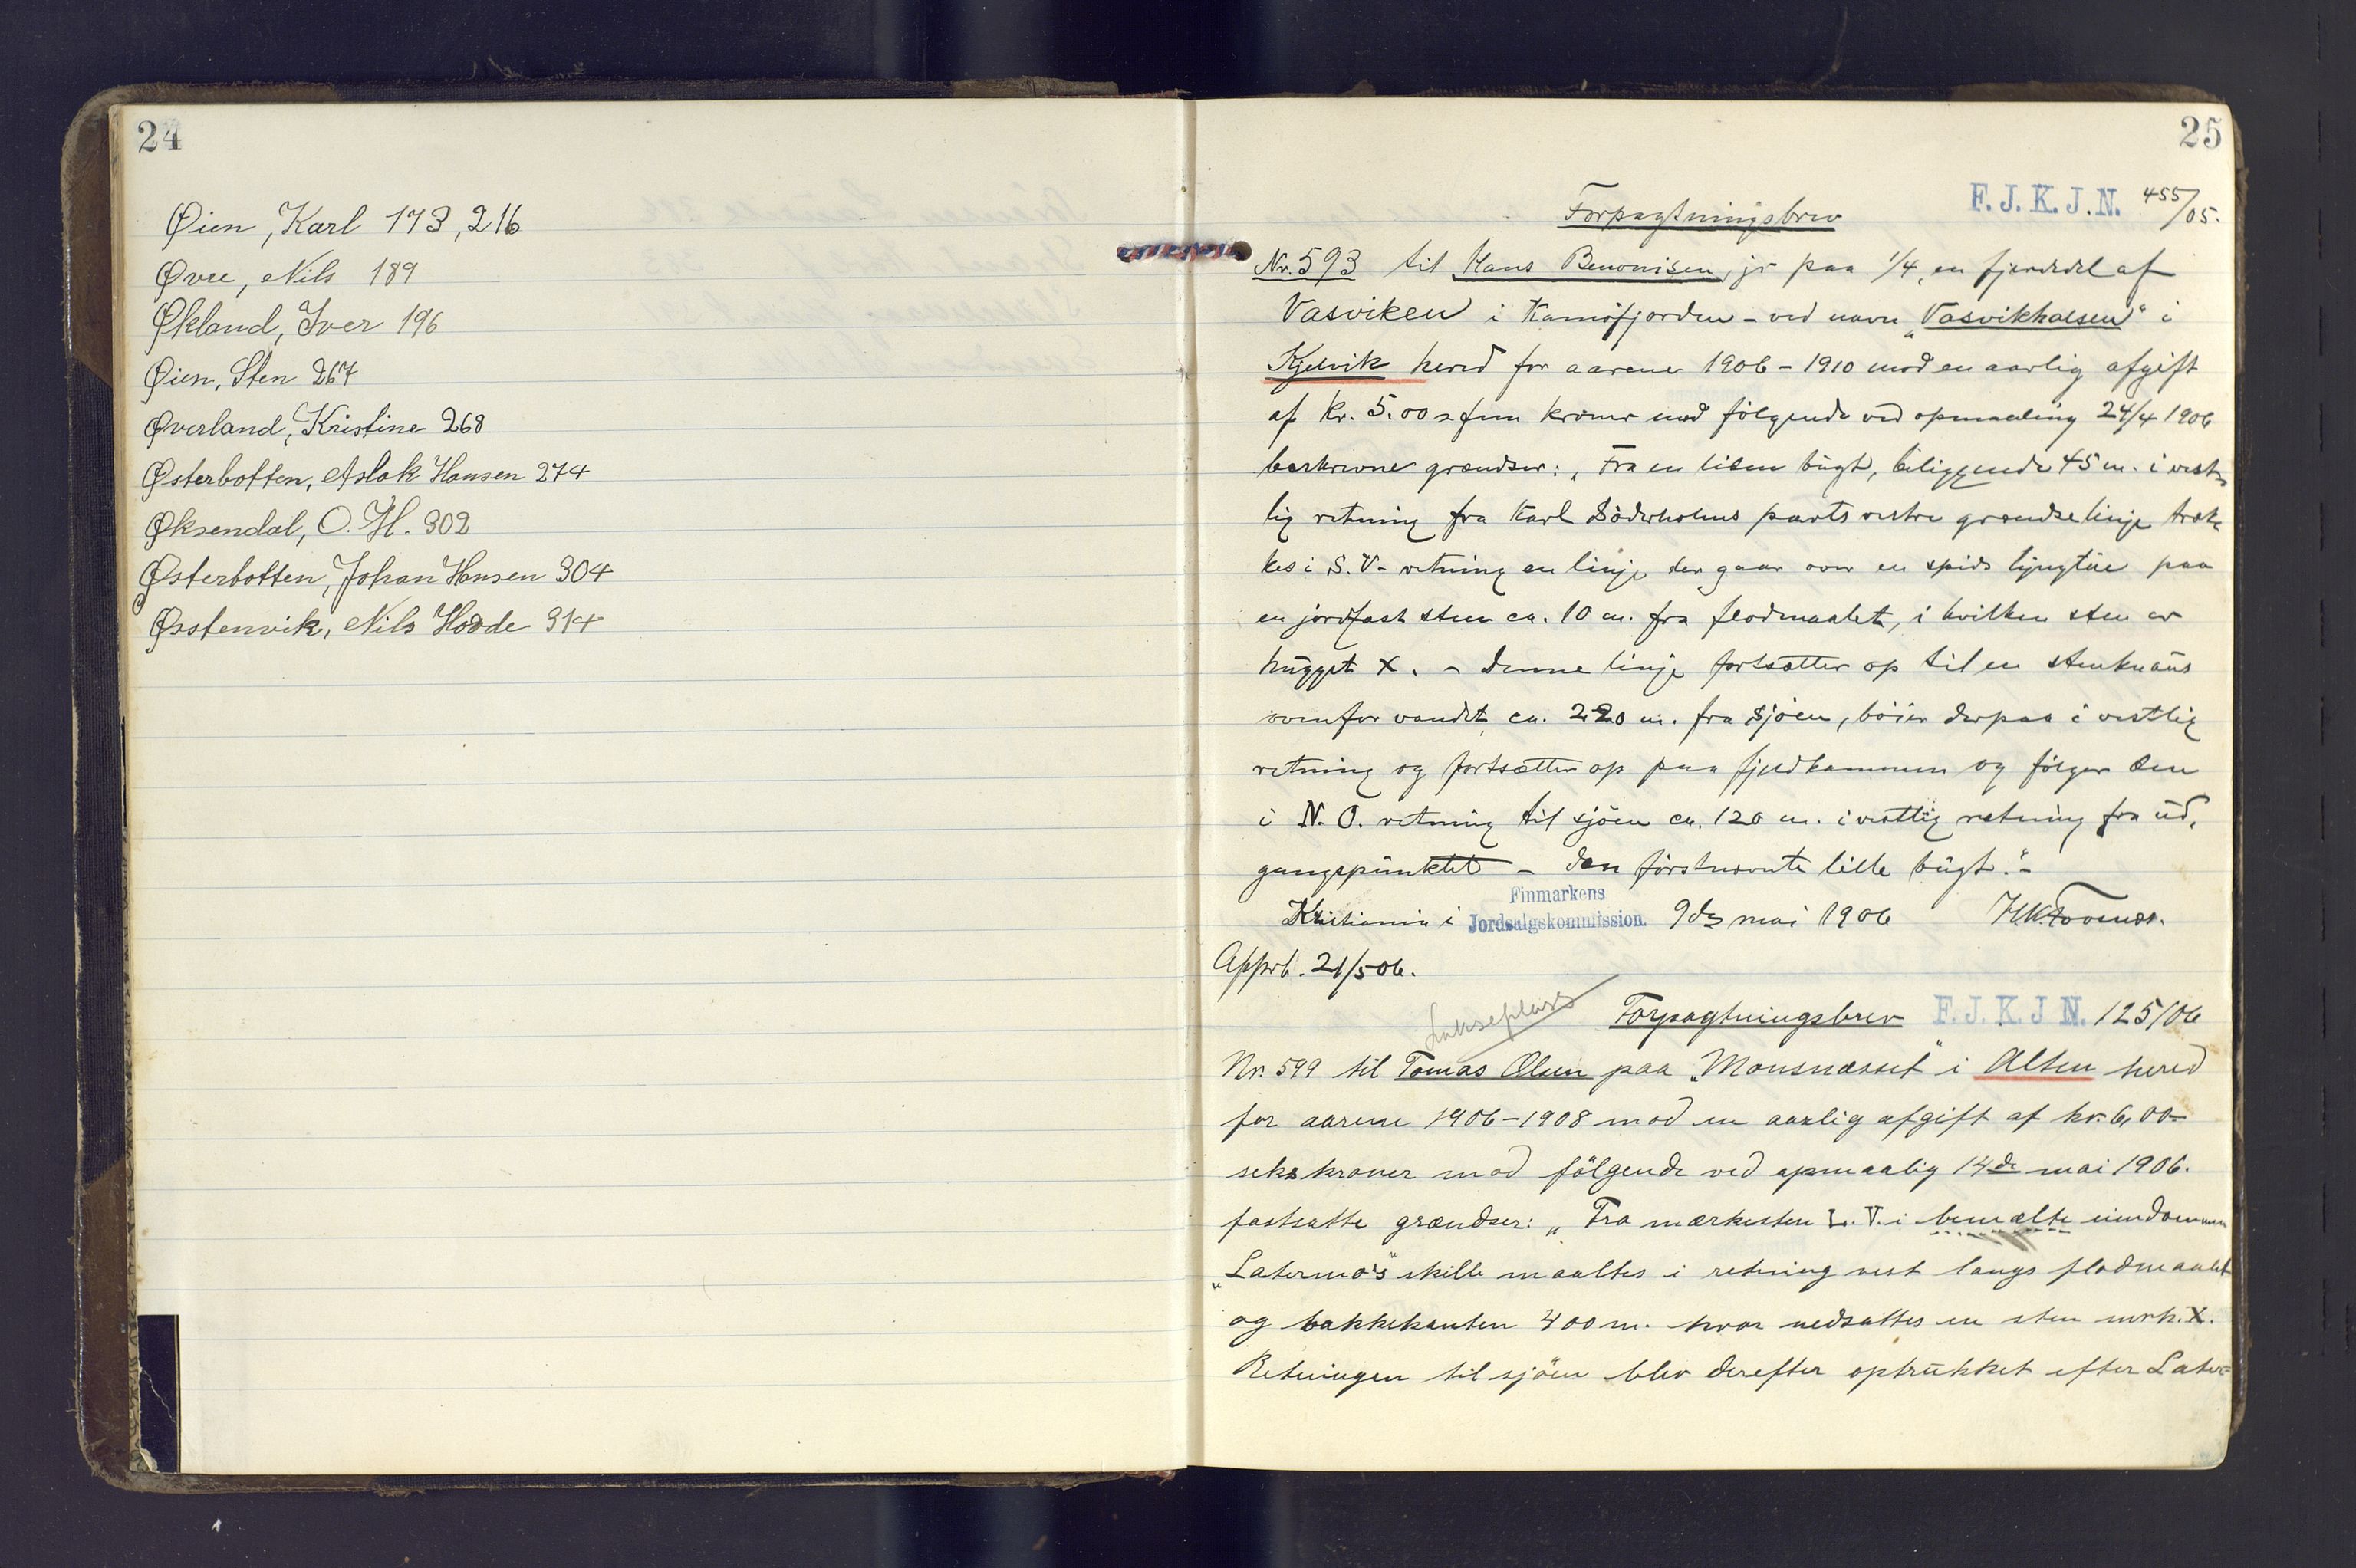 24
Øien, Karl 173, 216
Øvre, Nils 189
Økland, Iver 196
Øien, Sten 267
Øverland, Kristine 268
Østerbotten, Aslak Hansen 274
Øksendal, O. H. 302
Østerbotten, Johan Hansen 304
Øsstenvik, Nils Hodde 314
25
Forpagtningsbrev F. J. K. J. N. 455/05.
Nr. 593 til Hans Benonisen, jr paa 1/4, en fjerdedel af
Vasviken i Kamöfjorden - ved navn „Vasvikhaesen" i
Kjelvik herred for aarene 1906 - 1910 mod en aarlig afgift
af kr. 5.00 = fem kroner med fölgende ved opmaaling 24/4 1906
beskrevne grændser: „Fra en liden bugt, beliggende 45 m. i vest-
lig retning fra Karl Söderholms parts vestre grændselinje træk-
kes i S. V. retning en linje der gaar over en spids lyngtue paa
en jordfast sten ca. 10 m. fra flodmaalet, i hvilken sten er
hugget X. - Denne linje fortsætter op til en stenknaus
ovenfor vandet ca. 220 m. fra sjöen, böier derpaa i vestlig
retning og fortsætter op paa fjeldkammen og fölger den
i N. O. retning til sjöen ca. 120 m. i vestlig retning fra ud-
gangspunktet - den förstnævnte lille bugt." -
Kristiania i Finmarkens Jordsalgskommission. 9de mai 1906
Apprb. 21/5 06.
Lakseplass
Forpagtningsbrev F. J. K. J N. 125/06
Nr. 599 til Tomas Olsen paa „Monsnæsset" i Alten herred
for aarene 1906-1908 mod en aarlig afgift af kr. 6,00 -
seks kroner med fölgende ved opmaalig 14de mai 1906.
fastsatte grændser: „Fra mærkesten L. T. i bemælte eiendommen
„Latermo's" skille maaltes i retning vest langs flodmaalet
og bakkekanten 400 m. hvor nedsattes en sten mrk. X.
Retningen til sjöen blev derefter optrukket efter Later-